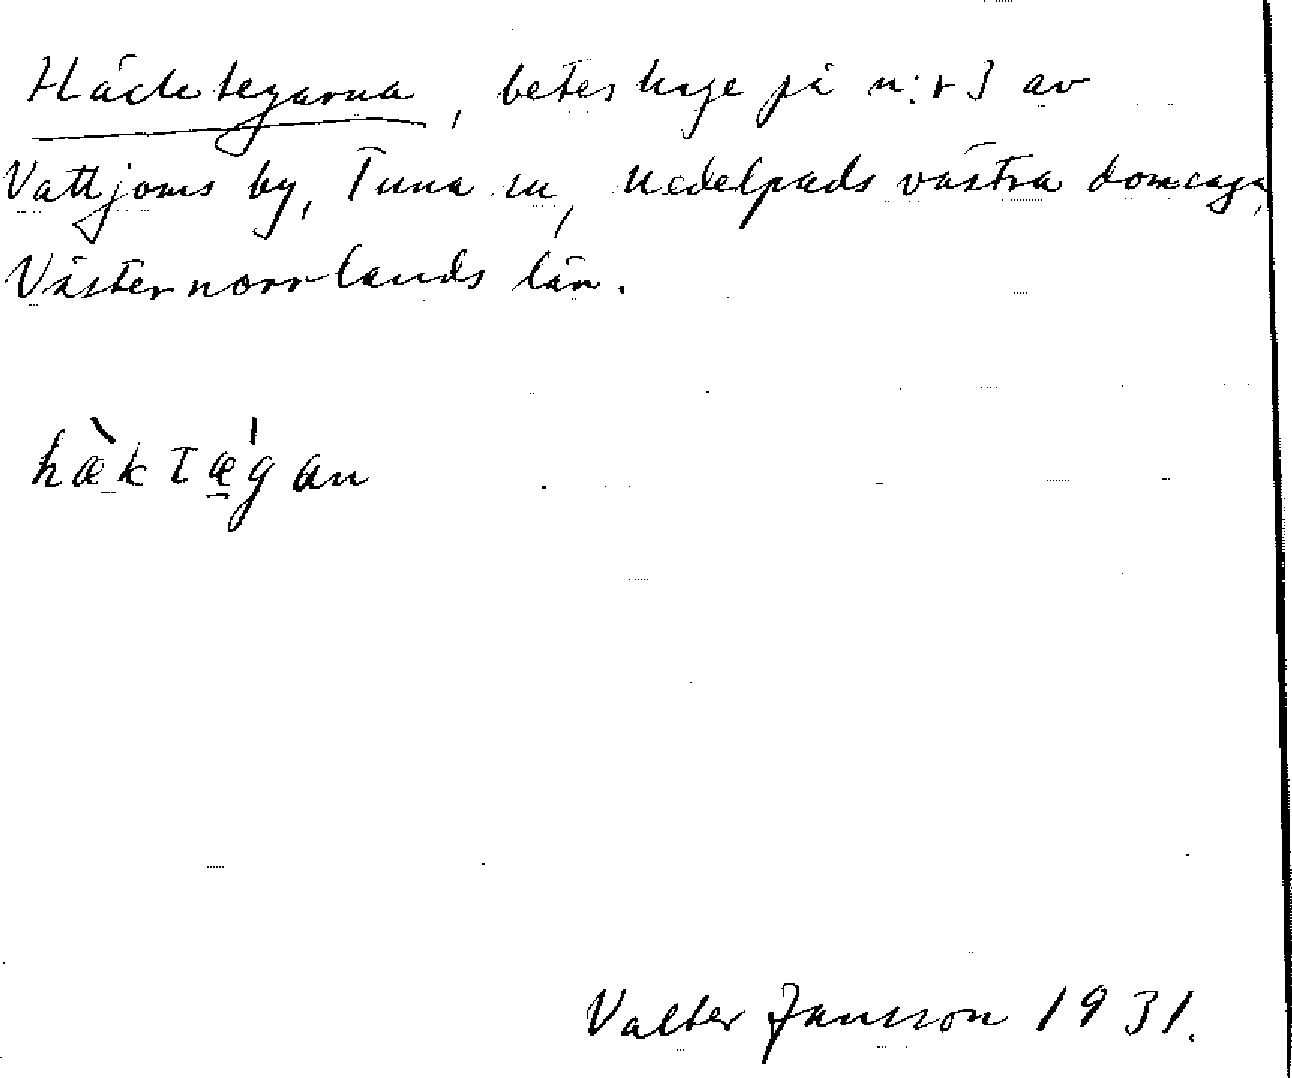 Häcktegarna, beteshage på n:r 3 av
Vattjoms by, Tuna sn, Medelpads västra domsaga,
Västernorrlands län.
hæ̀ktǽ̲gan
Valter Jansson 1931.